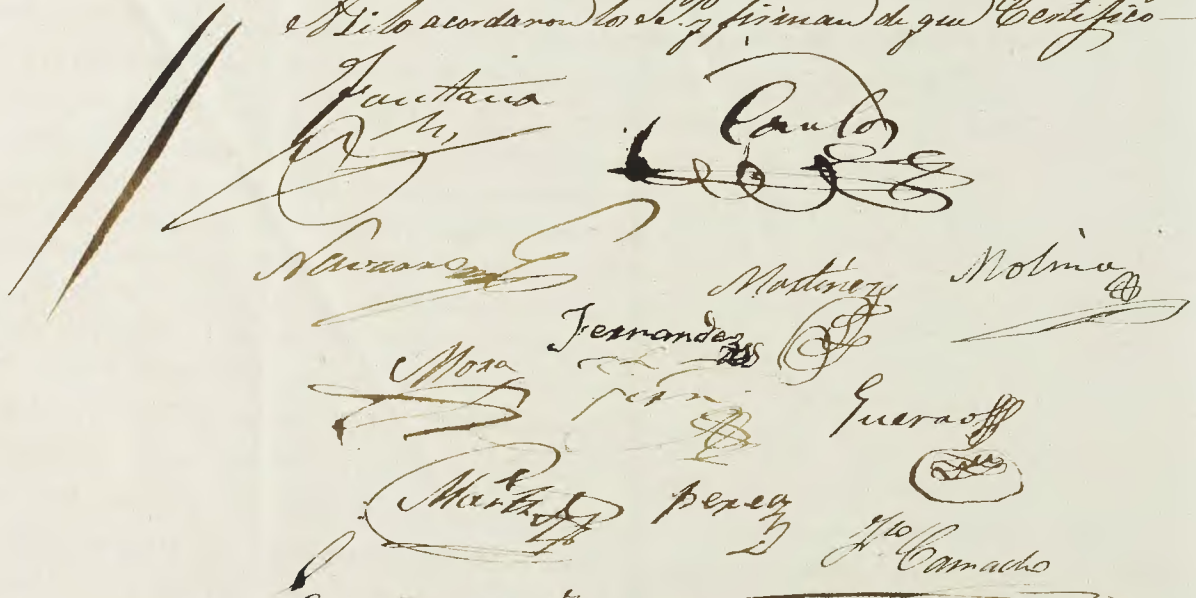 Asi lo acordaron los S.S. y firman de que Certifico
Fontana
Navarro
Martinez
Molina
Fernandez
Mora
Guerao
Mart.z
perez
Fco Camacho